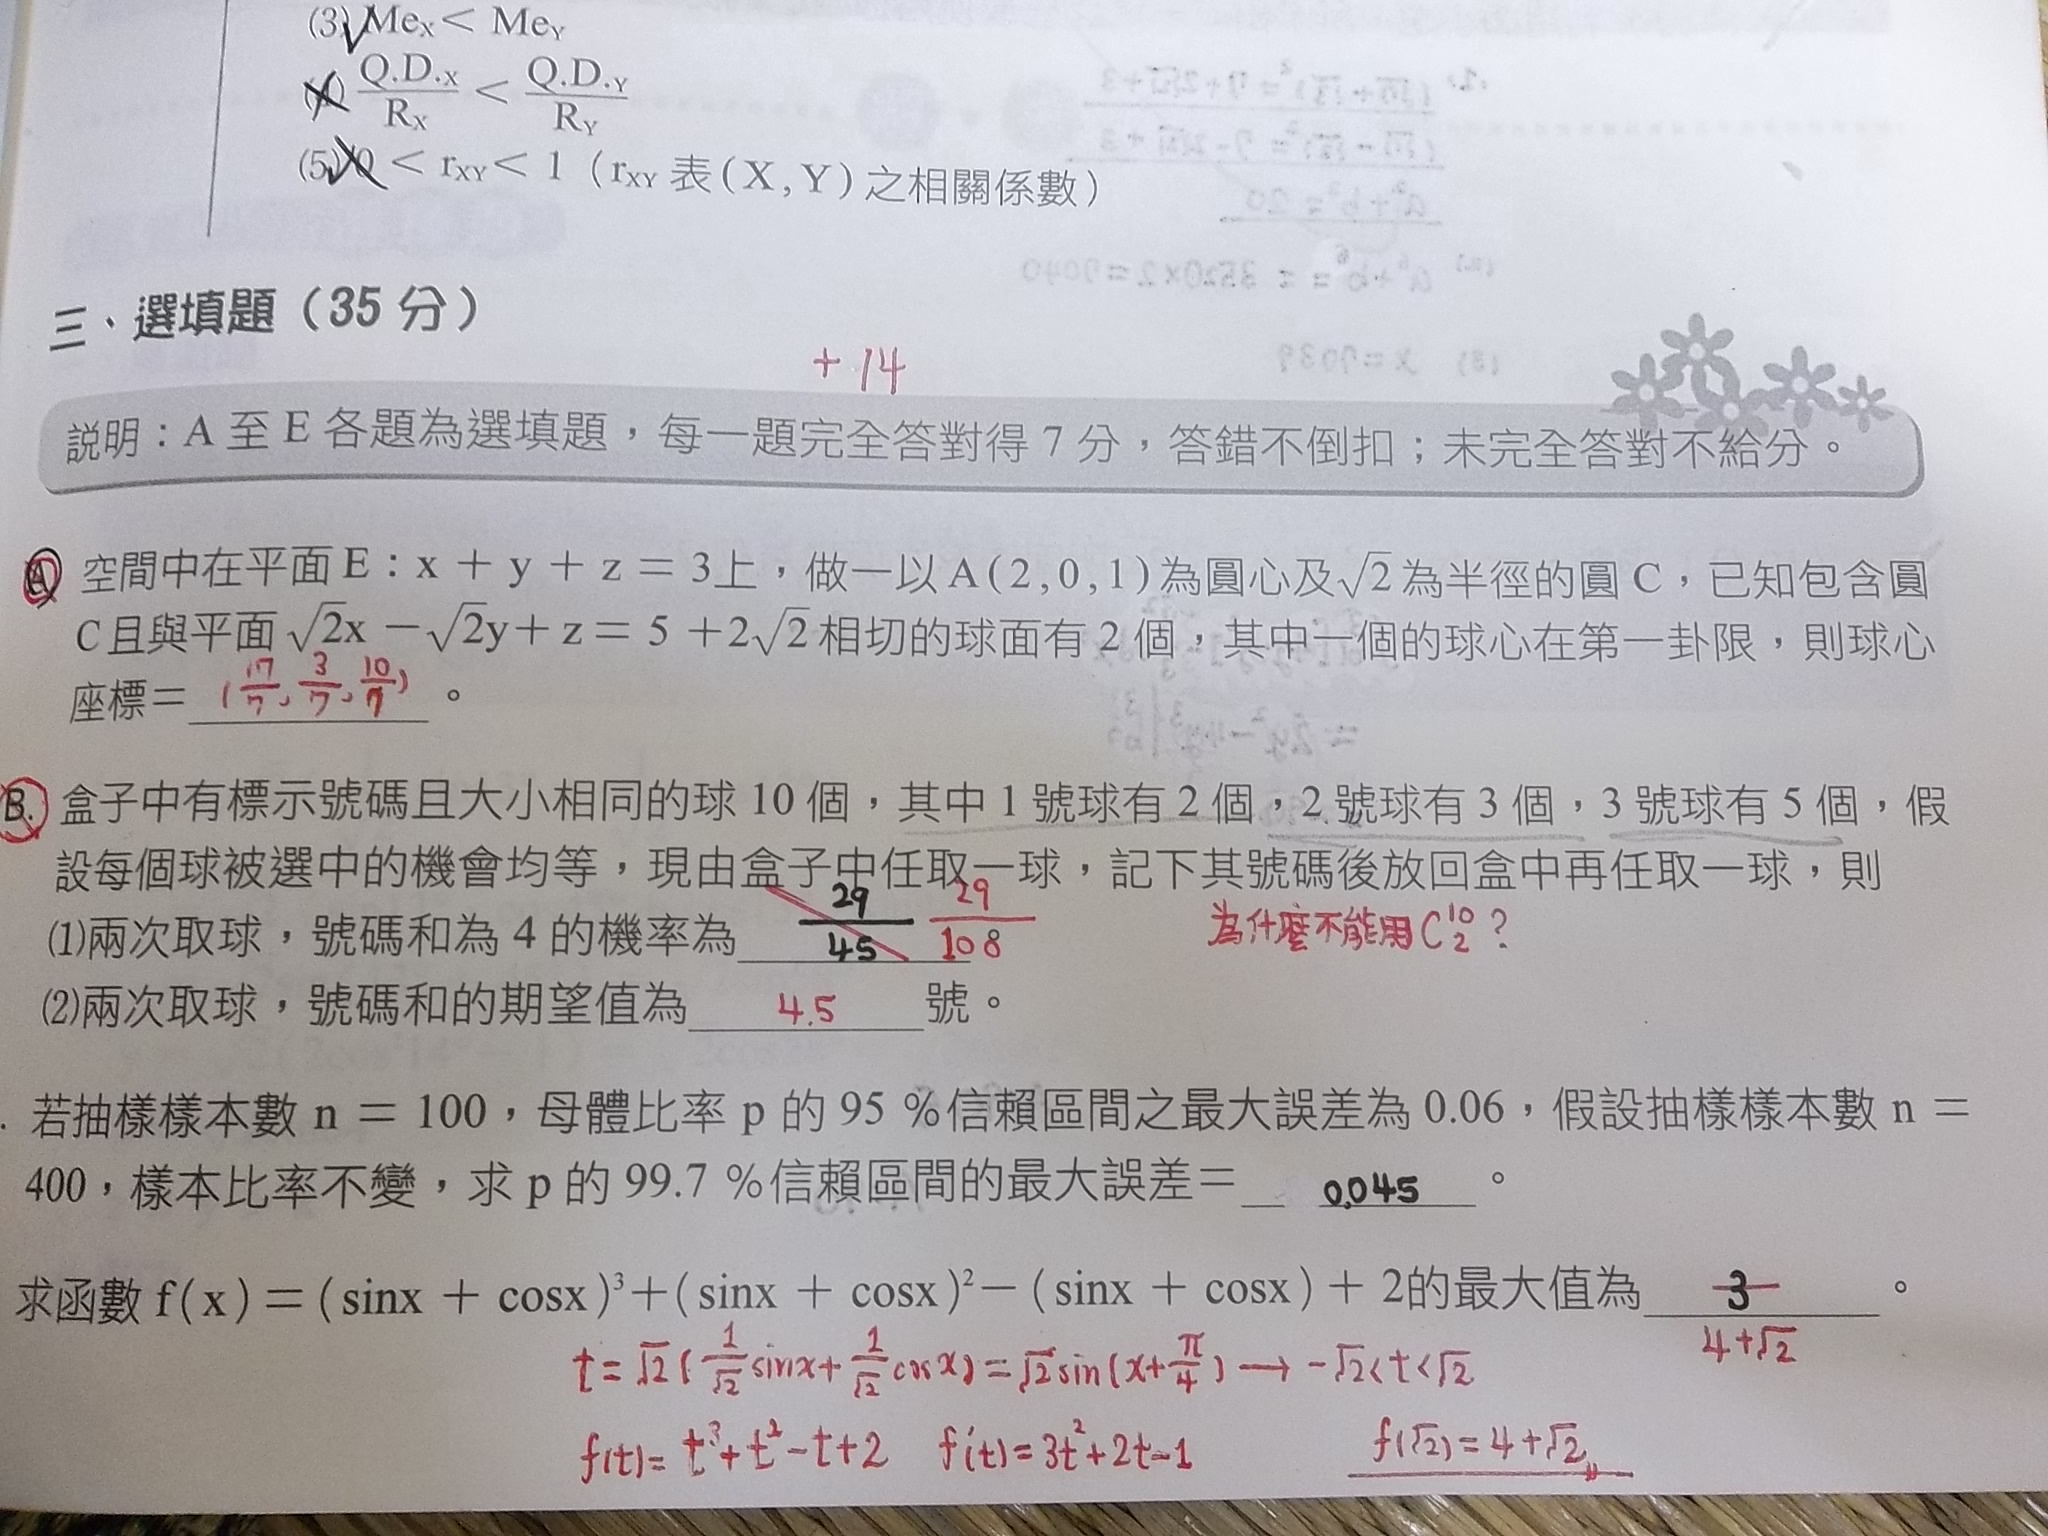 (3) Meₓ < Me_Y
(4) Q.D.ₓ/Rₓ < Q.D._Y/R_Y
(5) 0 < r_XY < 1（r_XY 表(X,Y)之相關係數）
三．選填題（35 分）
+14
說明：A 至 E 各題為選填題，每一題完全答對得 7 分，答錯不倒扣；未完全答對不給分。
A 空間中在平面 E：x + y + z = 3上，做一以 A(2,0,1)為圓心及√2為半徑的圓 C，已知包含圓
C 且與平面 √2x −√2y+ z = 5 +2√2相切的球面有 2 個，其中一個的球心在第一卦限，則球心
座標=(17/7, 3/7, 10/7)。
B. 盒子中有標示號碼且大小相同的球 10 個，其中 1 號球有 2 個，2 號球有 3 個，3 號球有 5 個，假
設每個球被選中的機會均等，現由盒子中任取一球，記下其號碼後放回盒中再任取一球，則
(1)兩次取球，號碼和為 4 的機率為 29/45 29/108 為什麼不能用C¹⁰₂?
(2)兩次取球，號碼和的期望值為 4.5 號。
. 若抽樣樣本數 n = 100，母體比率 p 的 95 %信賴區間之最大誤差為 0.06，假設抽樣樣本數 n =
400，樣本比率不變，求 p 的 99.7 %信賴區間的最大誤差= 0.045 。
求函數 f(x) = (sinx + cosx)³+(sinx + cosx)²−(sinx + cosx) + 2的最大值為 3 。
4+√2
t=√2(1/√2 sinx+1/√2 cosx)=√2sin(x+π/4)→-√2<t<√2
f(t)= t³+t²-t+2 f'(t)=3t²+2t-1 f(√2)=4+√2